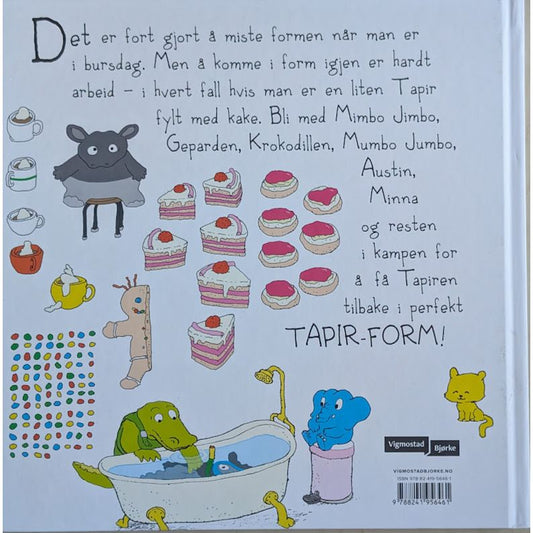 Det er fort gjort å miste formen når man er
i bursdag. Men å komme i form igjen er hardt
arbeid – i hvert fall hvis man er en liten Tapir
fylt med kake. Bli med Mimbo Jimbo,
Geparden, Krokodillen, Mumbo Jumbo,
Austin,
Minna
og resten
i kampen for
å få Tapiren
tilbake i perfekt
TAPIR-FORM!
Vigmostad Bjørke
VIGMOSTADBJORKE.NO
ISBN 978-82-419-5646-1
9 788241 956461